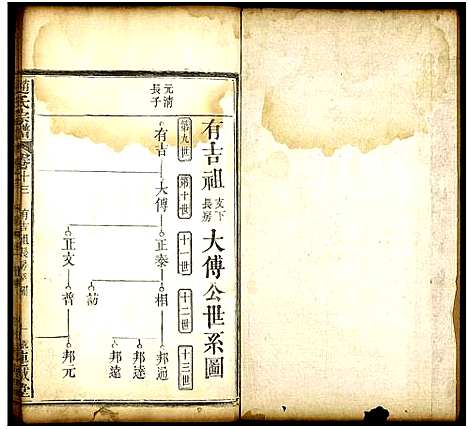 有吉祖支下長房大傅公世系圖
第九世
第十世
十一世
十二世
十三世
元清長子
有吉
大傅
正泰
相
邦通
邦達
邦遠
正文
普
邦元
氏宗譜
有吉祖長房系圖